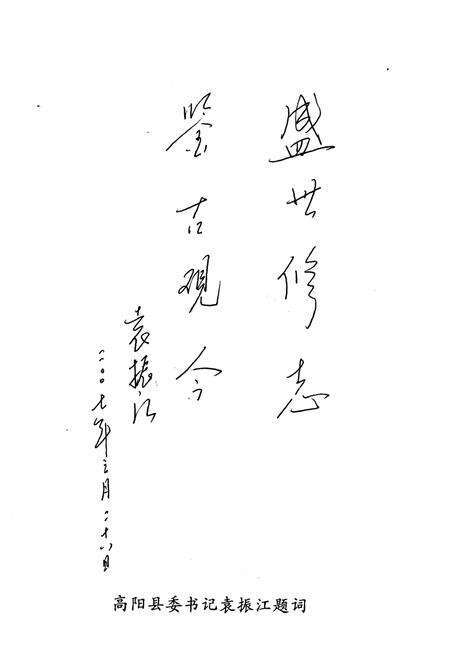 盛世修志
鉴古观今
袁振江
二〇〇七年三月二十六日
高阳县委书记袁振江题词